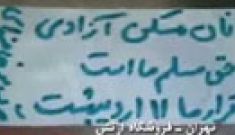 نان مسکن آزادی
حق مسلم ما است
قرار ما ۱۱ اردیبهشت
تهران - فروشگاه ارتش